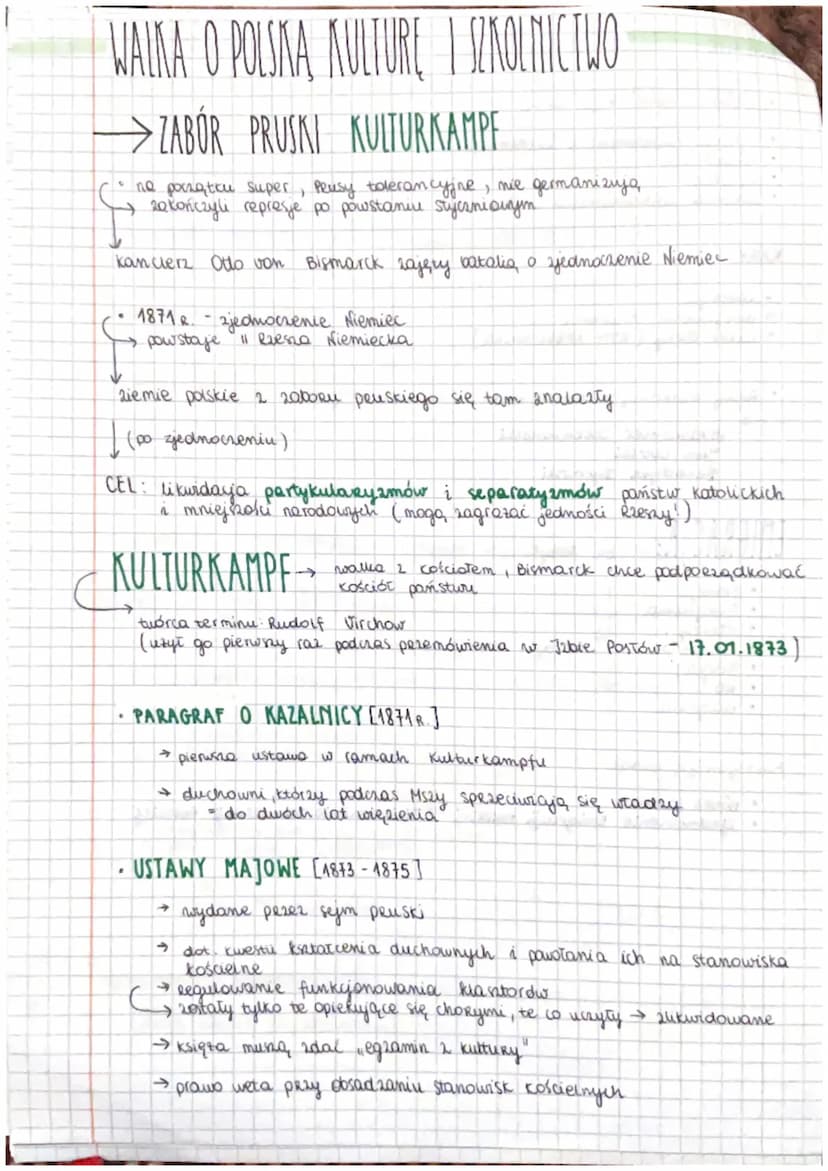 WALKA O POLSKĄ KULTURĘ I SZKOLNICTWO
→ ZABÓR PRUSKI KULTURKAMPF
• na początku super, Prusy tolerancyjne, nie germanizują
→ zakończyli represje po powstaniu styczniowym
kanclerz Otto von Bismarck zajęty batalią o zjednoczenie Niemiec
• 1871 R. - zjednoczenie Niemiec
→ powstaje II Rzesza Niemiecka
ziemie polskie z zaboru pruskiego się tam znalazły
↓ (po zjednoczeniu)
CEL: likwidacja partykularyzmów i separatyzmów państw katolickich
i mniejszości narodowych (mogą zagrażać jedności Rzeszy!)
KULTURKAMPF → walka z kościołem, Bismarck chce podporządkować
kościół państwu
→ twórca terminu: Rudolf Virchow
(użył go pierwszy raz podczas przemówienia w Izbie Posłów - 17.01.1873)
• PARAGRAF O KAZALNICY [1871 R.]
→ pierwsza ustawa w ramach Kulturkampfu
→ duchowni, którzy podczas Mszy sprzeciwiają się władzy
= do dwóch lat więzienia
• USTAWY MAJOWE [1873 - 1875]
→ wydane przez sejm pruski
→ dot. kwestii kształcenia duchownych i powołania ich na stanowiska
kościelne
→ regulowanie funkcjonowania klasztorów
→ zostały tylko te opiekujące się chorymi, te co uczyły → zlikwidowane
→ księża muszą zdać „egzamin z kultury"
→ prawo weta przy obsadzaniu stanowisk kościelnych